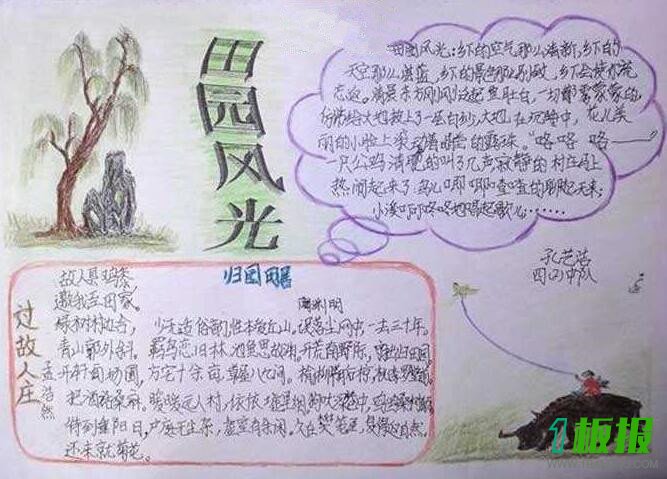 田园风光
田园风光:乡下的空气那么清新,乡下的
天空那么湛蓝,乡下的景色那么别致,乡下会使你流
连忘返,清晨东方刚刚泛起鱼肚白,一切都雾蒙蒙的,
仿佛给大地披上了一层白纱,大地在沉睡中,花儿美
丽的小脸上滚动着晶莹的露珠。"咯咯 咯——"
一只公鸡清脆的叫了几声寂静的村庄马上
热闹起来了鸟儿唧唧喳喳的唱起
小溪叮叮咚咚地唱起歌儿……
归园田居
陶渊明
少无适俗韵,性本爱丘山,误落尘网中,一去三十年。
羁鸟恋旧林,池鱼思故渊。开荒南野际,守拙归田园。
方宅十余亩,草屋八九间。榆柳荫后檐,桃李罗堂前。
暧暧远人村,依依墟里烟,狗吠深巷中,鸡鸣桑树颠。
户庭无尘杂,虚室有余闲,久在樊笼里,复得返自然。
过故人庄
孟浩然
故人具鸡黍,
邀我至田家。
绿树村边合,
青山郭外斜。
开轩面场圃,
把酒话桑麻。
待到重阳日,
还来就菊花。
孔艺洁
四(2)中队
1板报